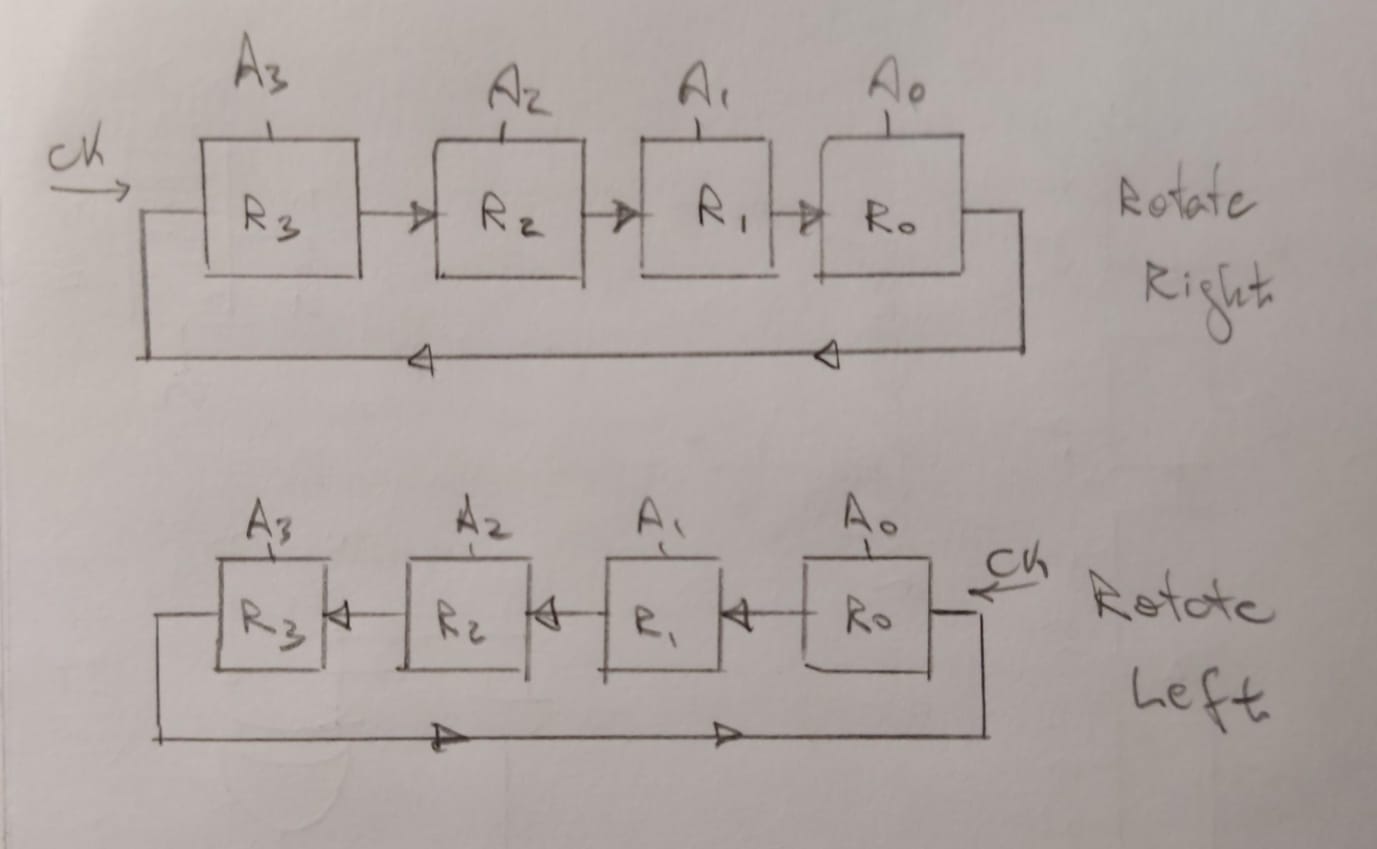 A3 A2 A1 A0
CK
R3 R2 R1 R0
Rotate
Right
A3 A2 A1 A0
CK
R3 R2 R1 R0
Rotate
Left